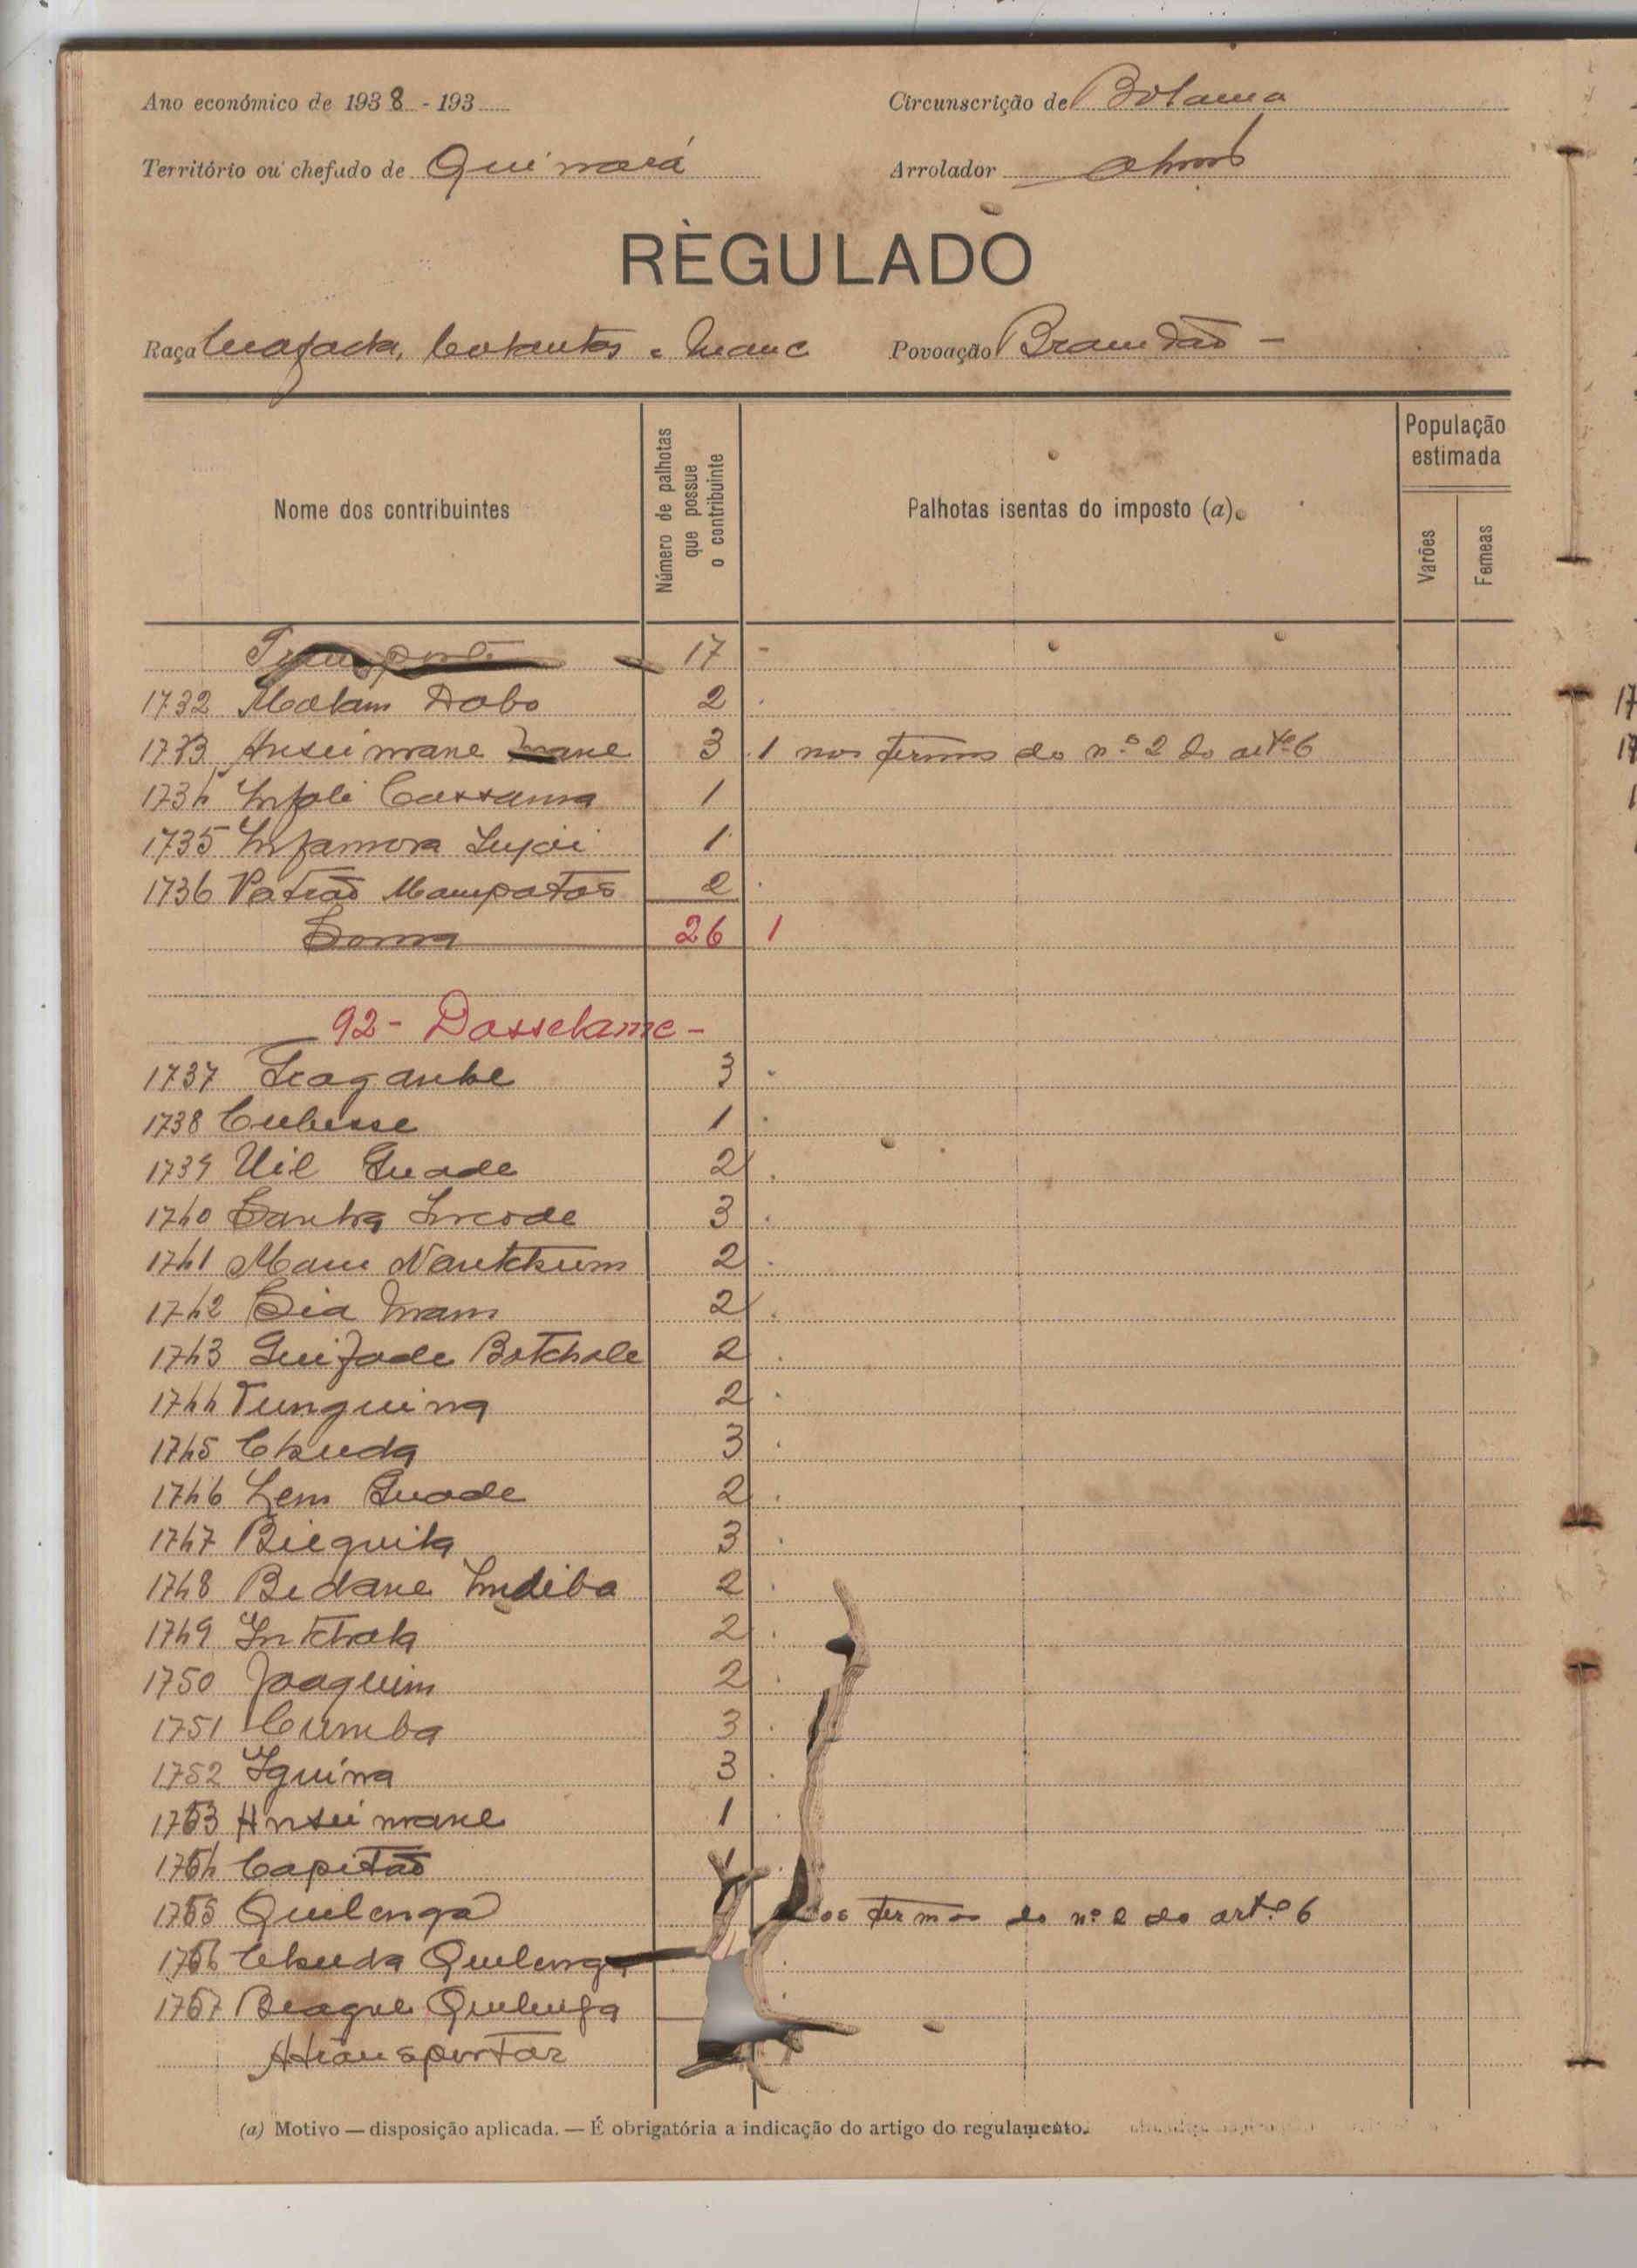 Ano económico de 1938 - 193
Circunscrição de Bolama
Território ou chefado de Quinará
Arrolador
REGULADO
Raça Beafada, e Mané
Povoação Brandão -
Nome dos contribuintes
Número de palhotas que possue o contribuinte
Palhotas isentas do imposto (a)
População estimada
Varões
Femeas
Transporte 17 -
1732 Malam Dabo 2
1733 Ansúi mane 3 1 nos termos do n.º 2 do artº 6
1734 Infali Cassama 1
1735 Infamora 1
1736 Patrão Mampatás 2
Soma 26 1
92 - Dasselame -
1737 3
1738 1
1739 Uil Guade 2
1740 Sanha Incode 3
1741 Mam Nantchum 2
1742 Sia 2
1743 Guifade Batchale 2
1744 Tunguina 2
1745 Chuda 3
1746 Lem Guade 2
1747 Bieguita 3
1748 Bedane Indiba 2
1749 Intchala 2
1750 Joaquim 2
1751 Cumba 3
1752 Iguina 3
1753 Ansúi mané 1
1754 Capitão
1755 Quilenga os termos do nº 2 do artº 6
1756 Chuda Quilenga
1757 Beague Quilenga
A transportar
(a) Motivo — disposição aplicada. — É obrigatória a indicação do artigo do regulamento.